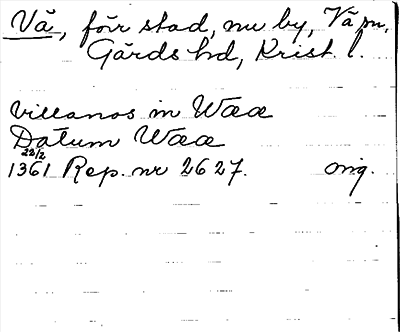 Vä, förr stad, nu by, Vä sn,
Gärds hd, Krist. l.
villanos in Wææ
Datum Wææ
22/2
1361 Rep. nr 2627. orig.